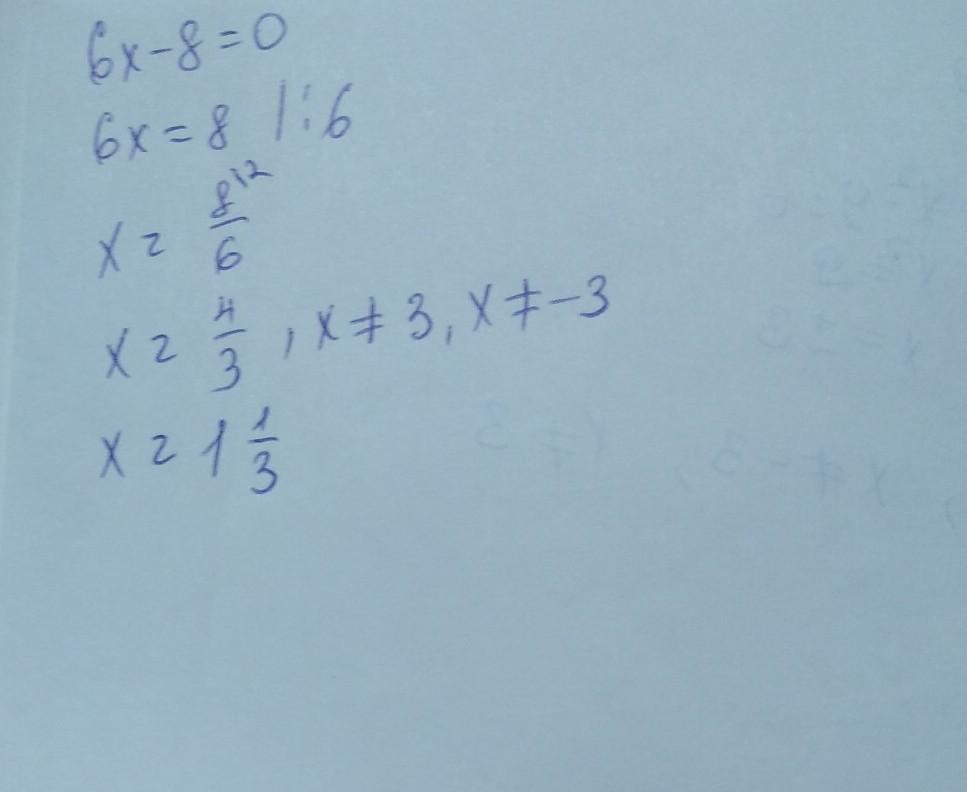 6x-8=0
6x=8 |:6
x = 8/6 \2
x = 4/3, x≠3, x≠-3
x = 1 1/3